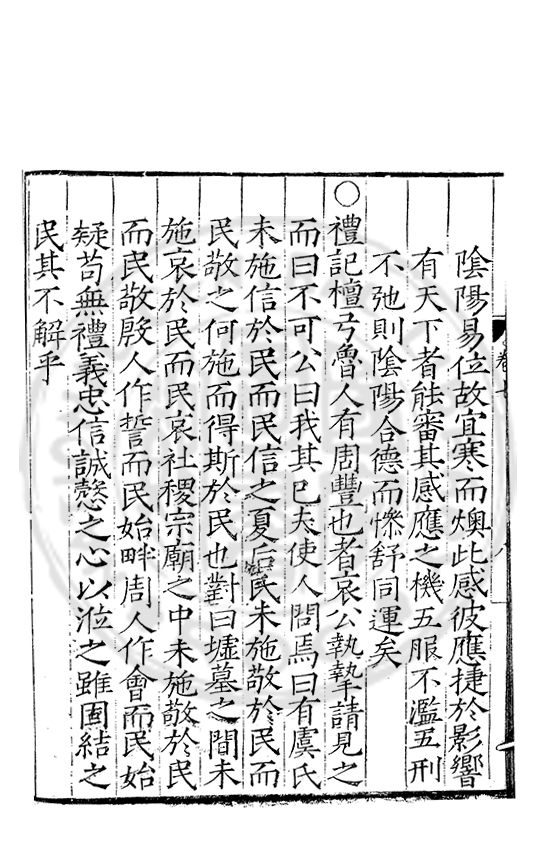 陰陽易位故宜寒而燠此感彼應捷於影響
有天下者能審其感應之機五服不濫五刑
不弛則陰陽合德而慘舒同運矣
○
禮記檀弓魯人有周豐也者哀公執摯請見之
而曰不可公曰我其已夫使人問焉曰有虞氏
未施信於民而民信之夏后氏未施敬於民而
民敬之何施而得斯於民也對曰墟墓之間未
施哀於民而民哀社稷宗廟之中未施敬於民
而民敬殷人作誓而民始畔周人作會而民始
疑苟無禮義忠信誠愨之心以涖之雖固結之
民其不解乎